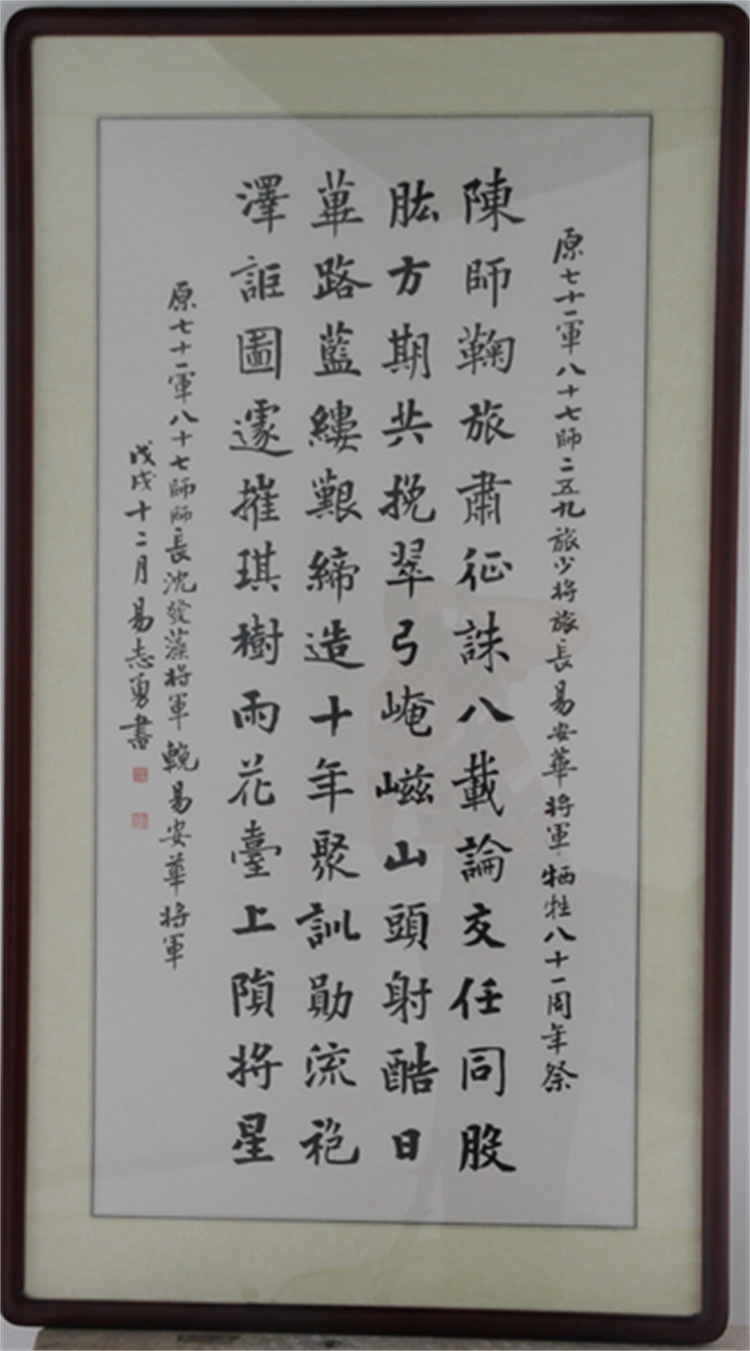 原七十一軍八十七師二五九旅少將旅長易安華將軍牺牲八十一周年祭
陳師鞠旅肅征誅八載論交任同股
肱方期共挽翠弓崦嵫山頭射酷日
蓽路藍縷艱締造十年聚訓勛流袍
澤詎圖遽摧琪樹雨花臺上隕將星
原七十一軍八十七師師長沈發藻將軍輓易安華將軍
戊戌十二月易志勇書